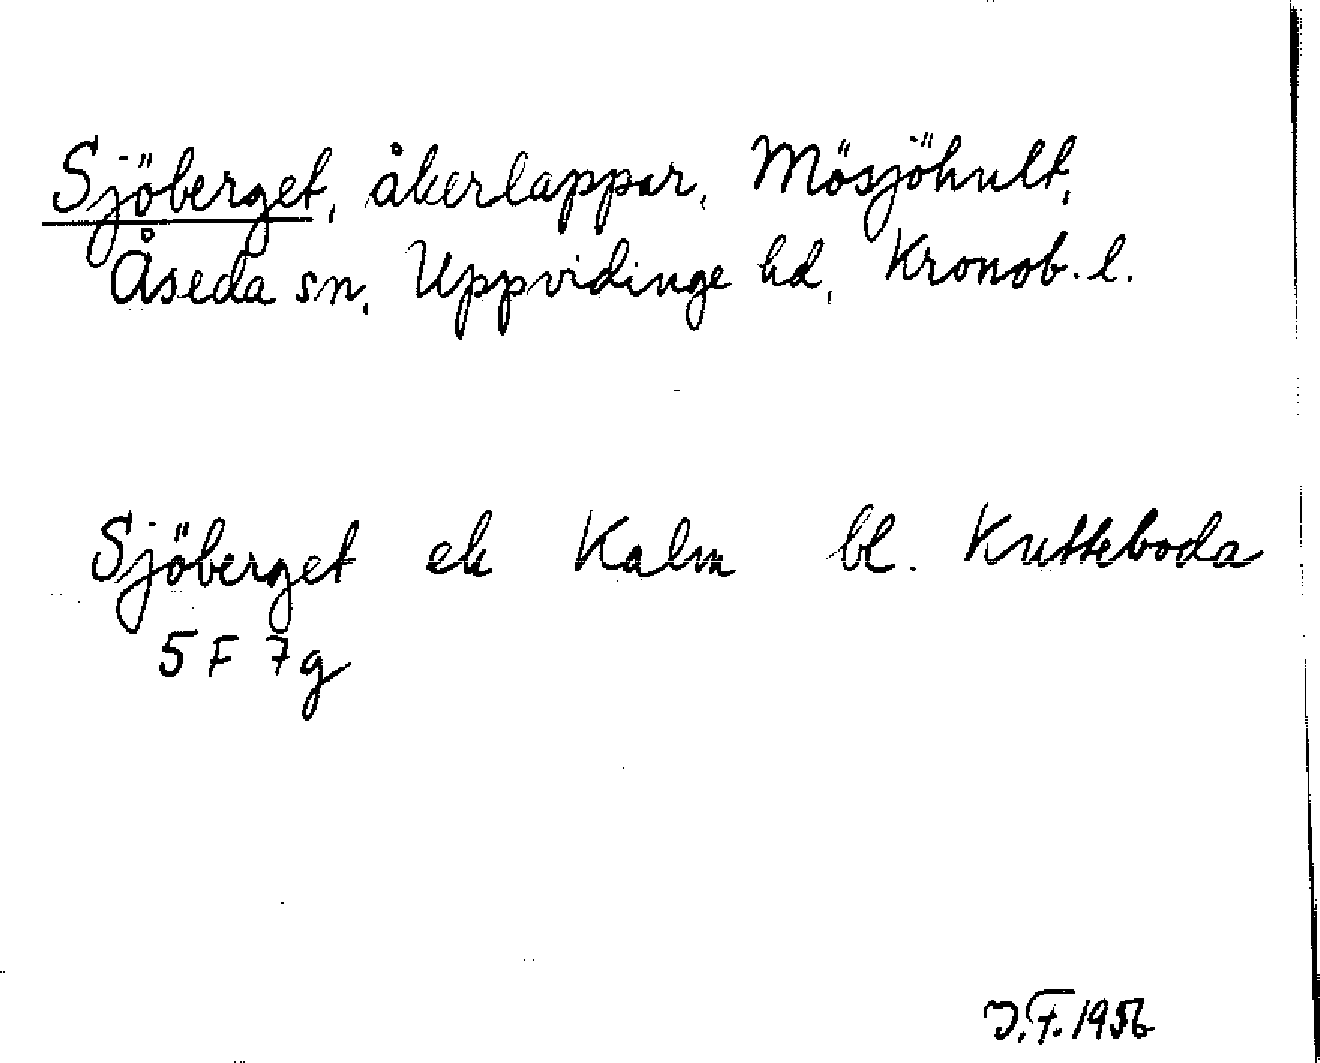 Sjöberget, åkerlappar, Mösjöhult,
Åseda sn, Uppvidinge hd, Kronob. l.
Sjöberget ek Kalm bl. Kutteboda
5 F 7 g
J. F. 1956